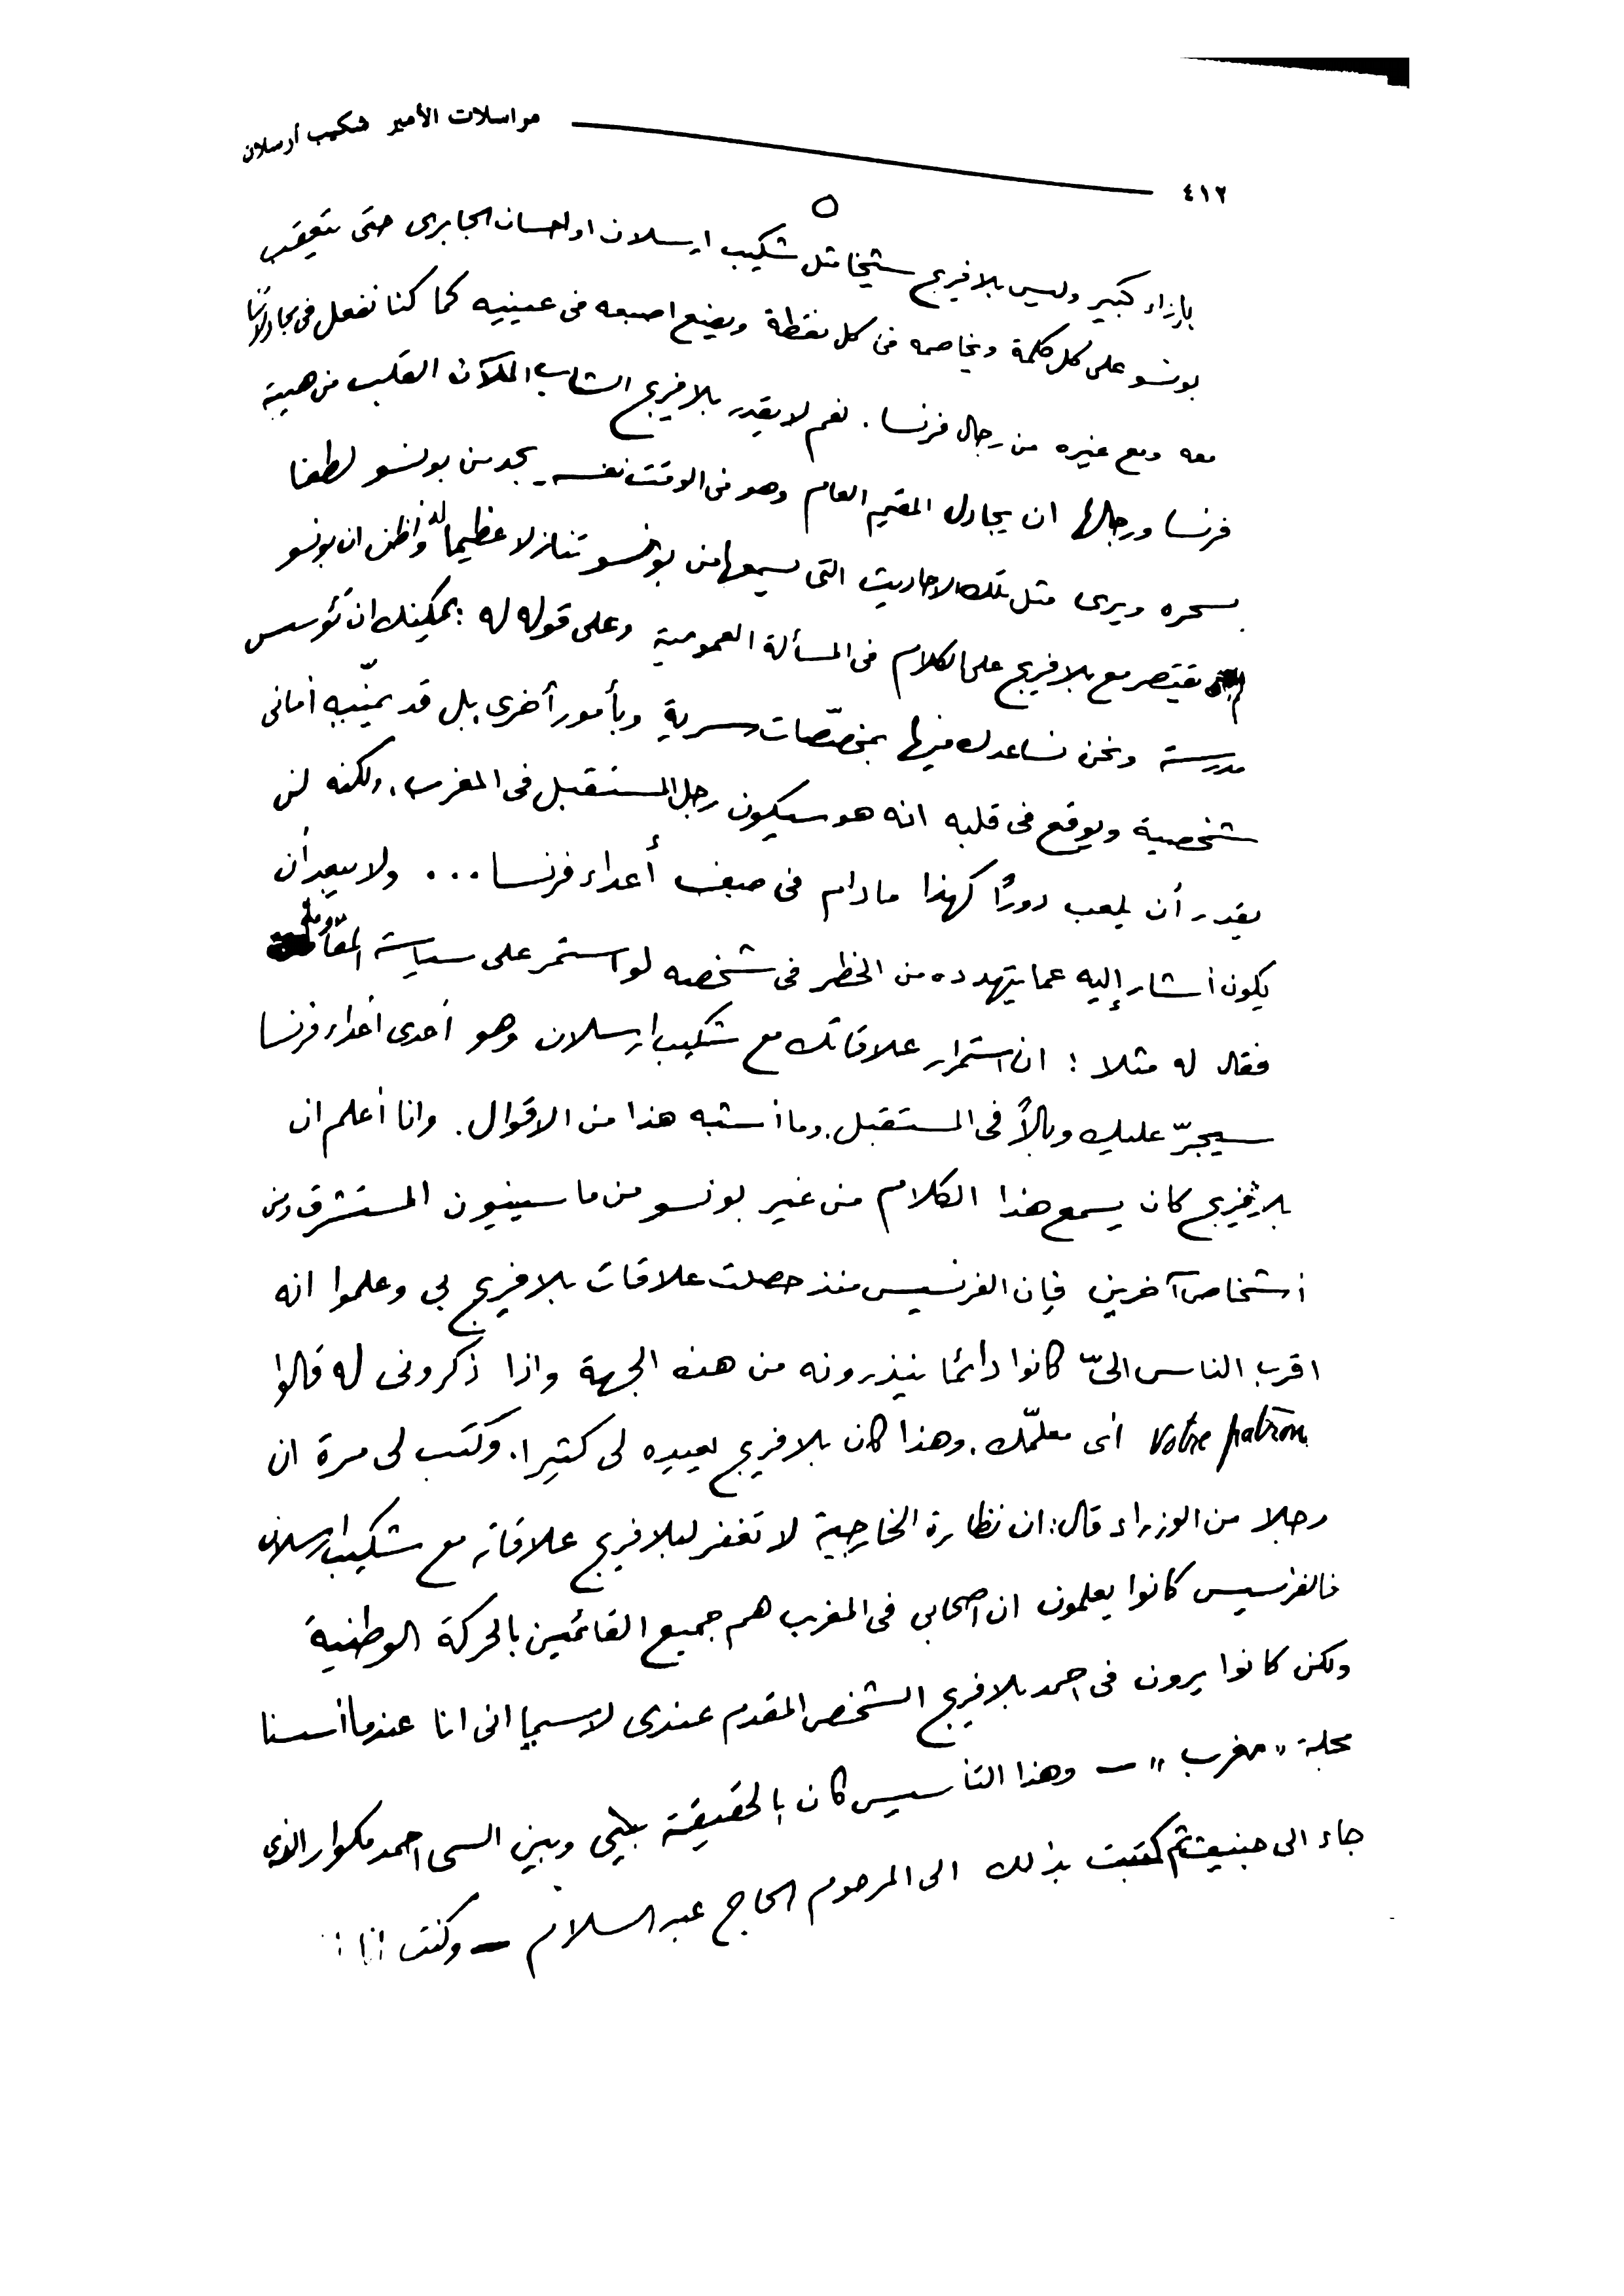 مراسلات الأمير شكيب أرسلان
٤١٢
٥
بإزاء كبير وليس بلافريج شيخا مثل شكيب ارسلان او احسان الجابرى حتى يتعقب
بونسو على كل كلمة ويخاصمه فى كل نقطة ويضع اصبعه فى عينيه كما كنا نفعل فى مجادلاتنا
معه ومع غيره من رجال فرنسا. نعم لا يقدر بلافريج الشاب الملآن القلب من هيبة
فرنسا ورجالها ان يجادل المقيم العام وهو فى الوقت نفسه يجد من بونسو لطفا
يسحره ويرى مثل تلك الاحاديث التى يسمعها من بونسو تنازلا عظيما له واظن ان بونسو
لم يقتصر مع بلافريج على الكلام فى المسألة العمومية وعلى قوله له: يمكينك ان تؤسس
مدرسة ونحن نساعدك فيها بمخصّصات سرية وبأمور أخرى بل قد يمنّيه أمانى
شخصية ويوقع فى قلبه انه هو سيكون رجل المستقبل فى المغرب، ولكنه لن
يقدر أن يلعب دورًا كهذا ما دام فى صف أعداء فرنسا... ولا يبعد أن
يكون أشار إليه عما يتهدده من الخطر فى شخصه لو استمر على سياسة المقاومة
فقال له مثلا: ان استمرار علاقاتك مع شكيب ارسلان وهو أعدى أعداء فرنسا
سيجرّ عليك وبالاً فى المستقبل. وما أشبه هذا من الاقوال. وانا أعلم ان
بلافريج كان يسمع هذا الكلام من غير بونسو من ماسينيون المستشرق ومن
أشخاص آخرين فإن الفرنسيس منذ حصلت علاقات بلافريج بى وعلموا انه
اقرب الناس الىّ كانوا دائما ينذرونه من هذه الجهة واذا ذكرونى له قالوا
Votre patron أى معلّمك. وهذا كان بلافريج يعيده لى كثيرا. وكتب لى مرة ان
رجلا من الوزراء قال: ان نظارة الخارجية لا تغفر لبلافريج علاقاته مع شكيب ارسلان
فالفرنسيس كانوا يعلمون ان اصحابى فى المغرب هم جميع القائمين بالحركة الوطنية
ولكن كانوا يرون فى احمد بلافريج الشخص المقدم عندى لا سيما انى انا عندما أسسنا
مجلة "مغرب" — وهذا التأسيس كان بالحقيقة بينى وبين السى احمد مكوار الذى
جاء الى جنيف ثم كتبت بذلك الى المرحوم الحاج عبد السلام — وكنت انا